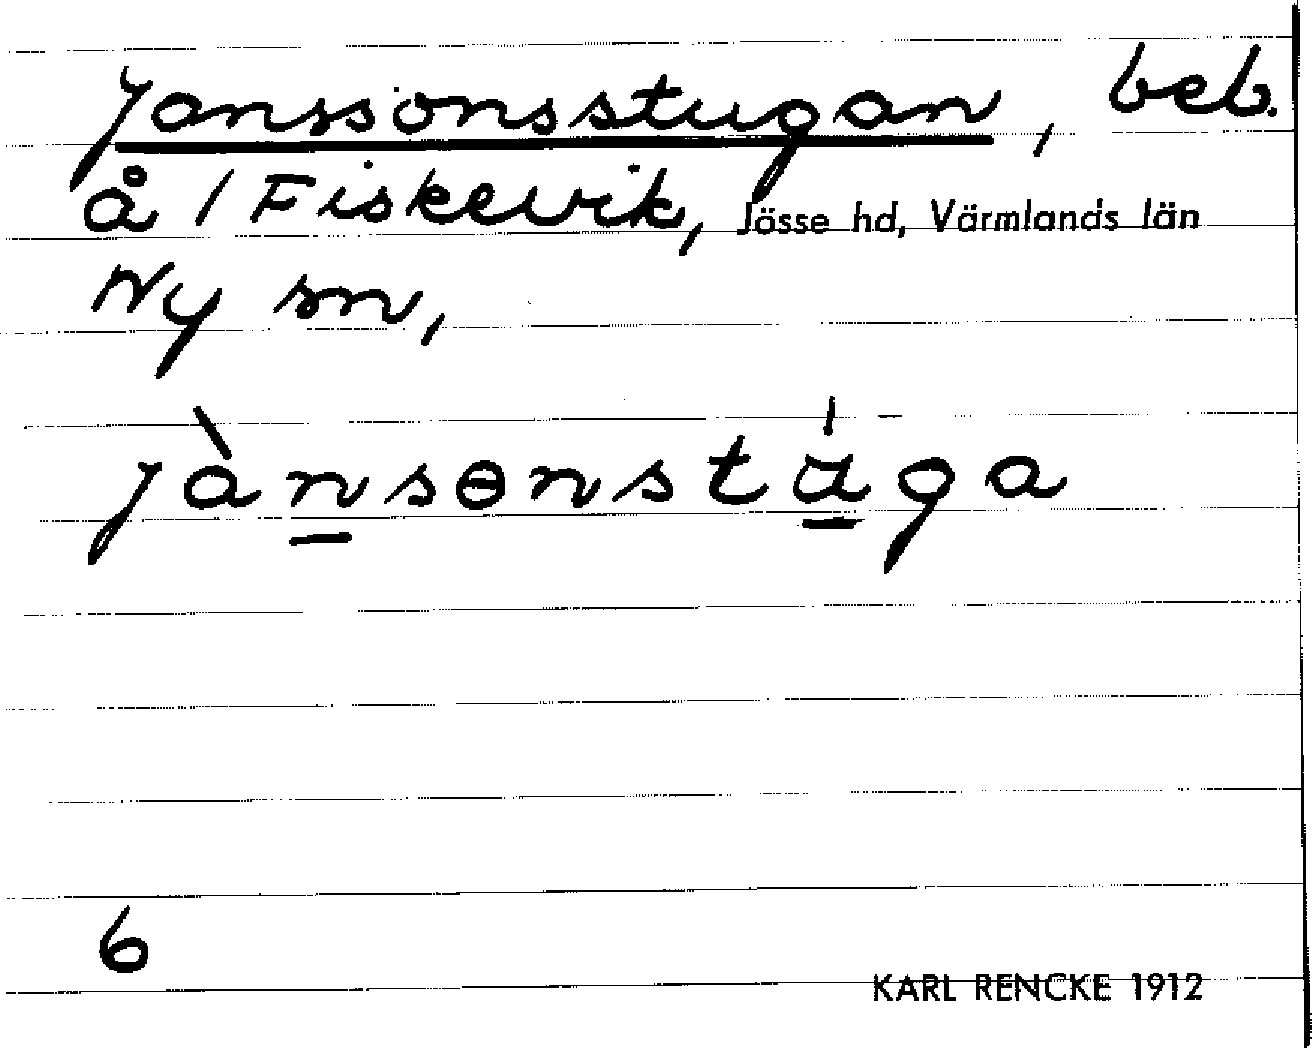 Janssonsstugan, beb.
å 1 Fiskevik, Jösse hd, Värmlands län
Ny sn,
jànsɵnstú̲ga
6
KARL RENCKE 1912